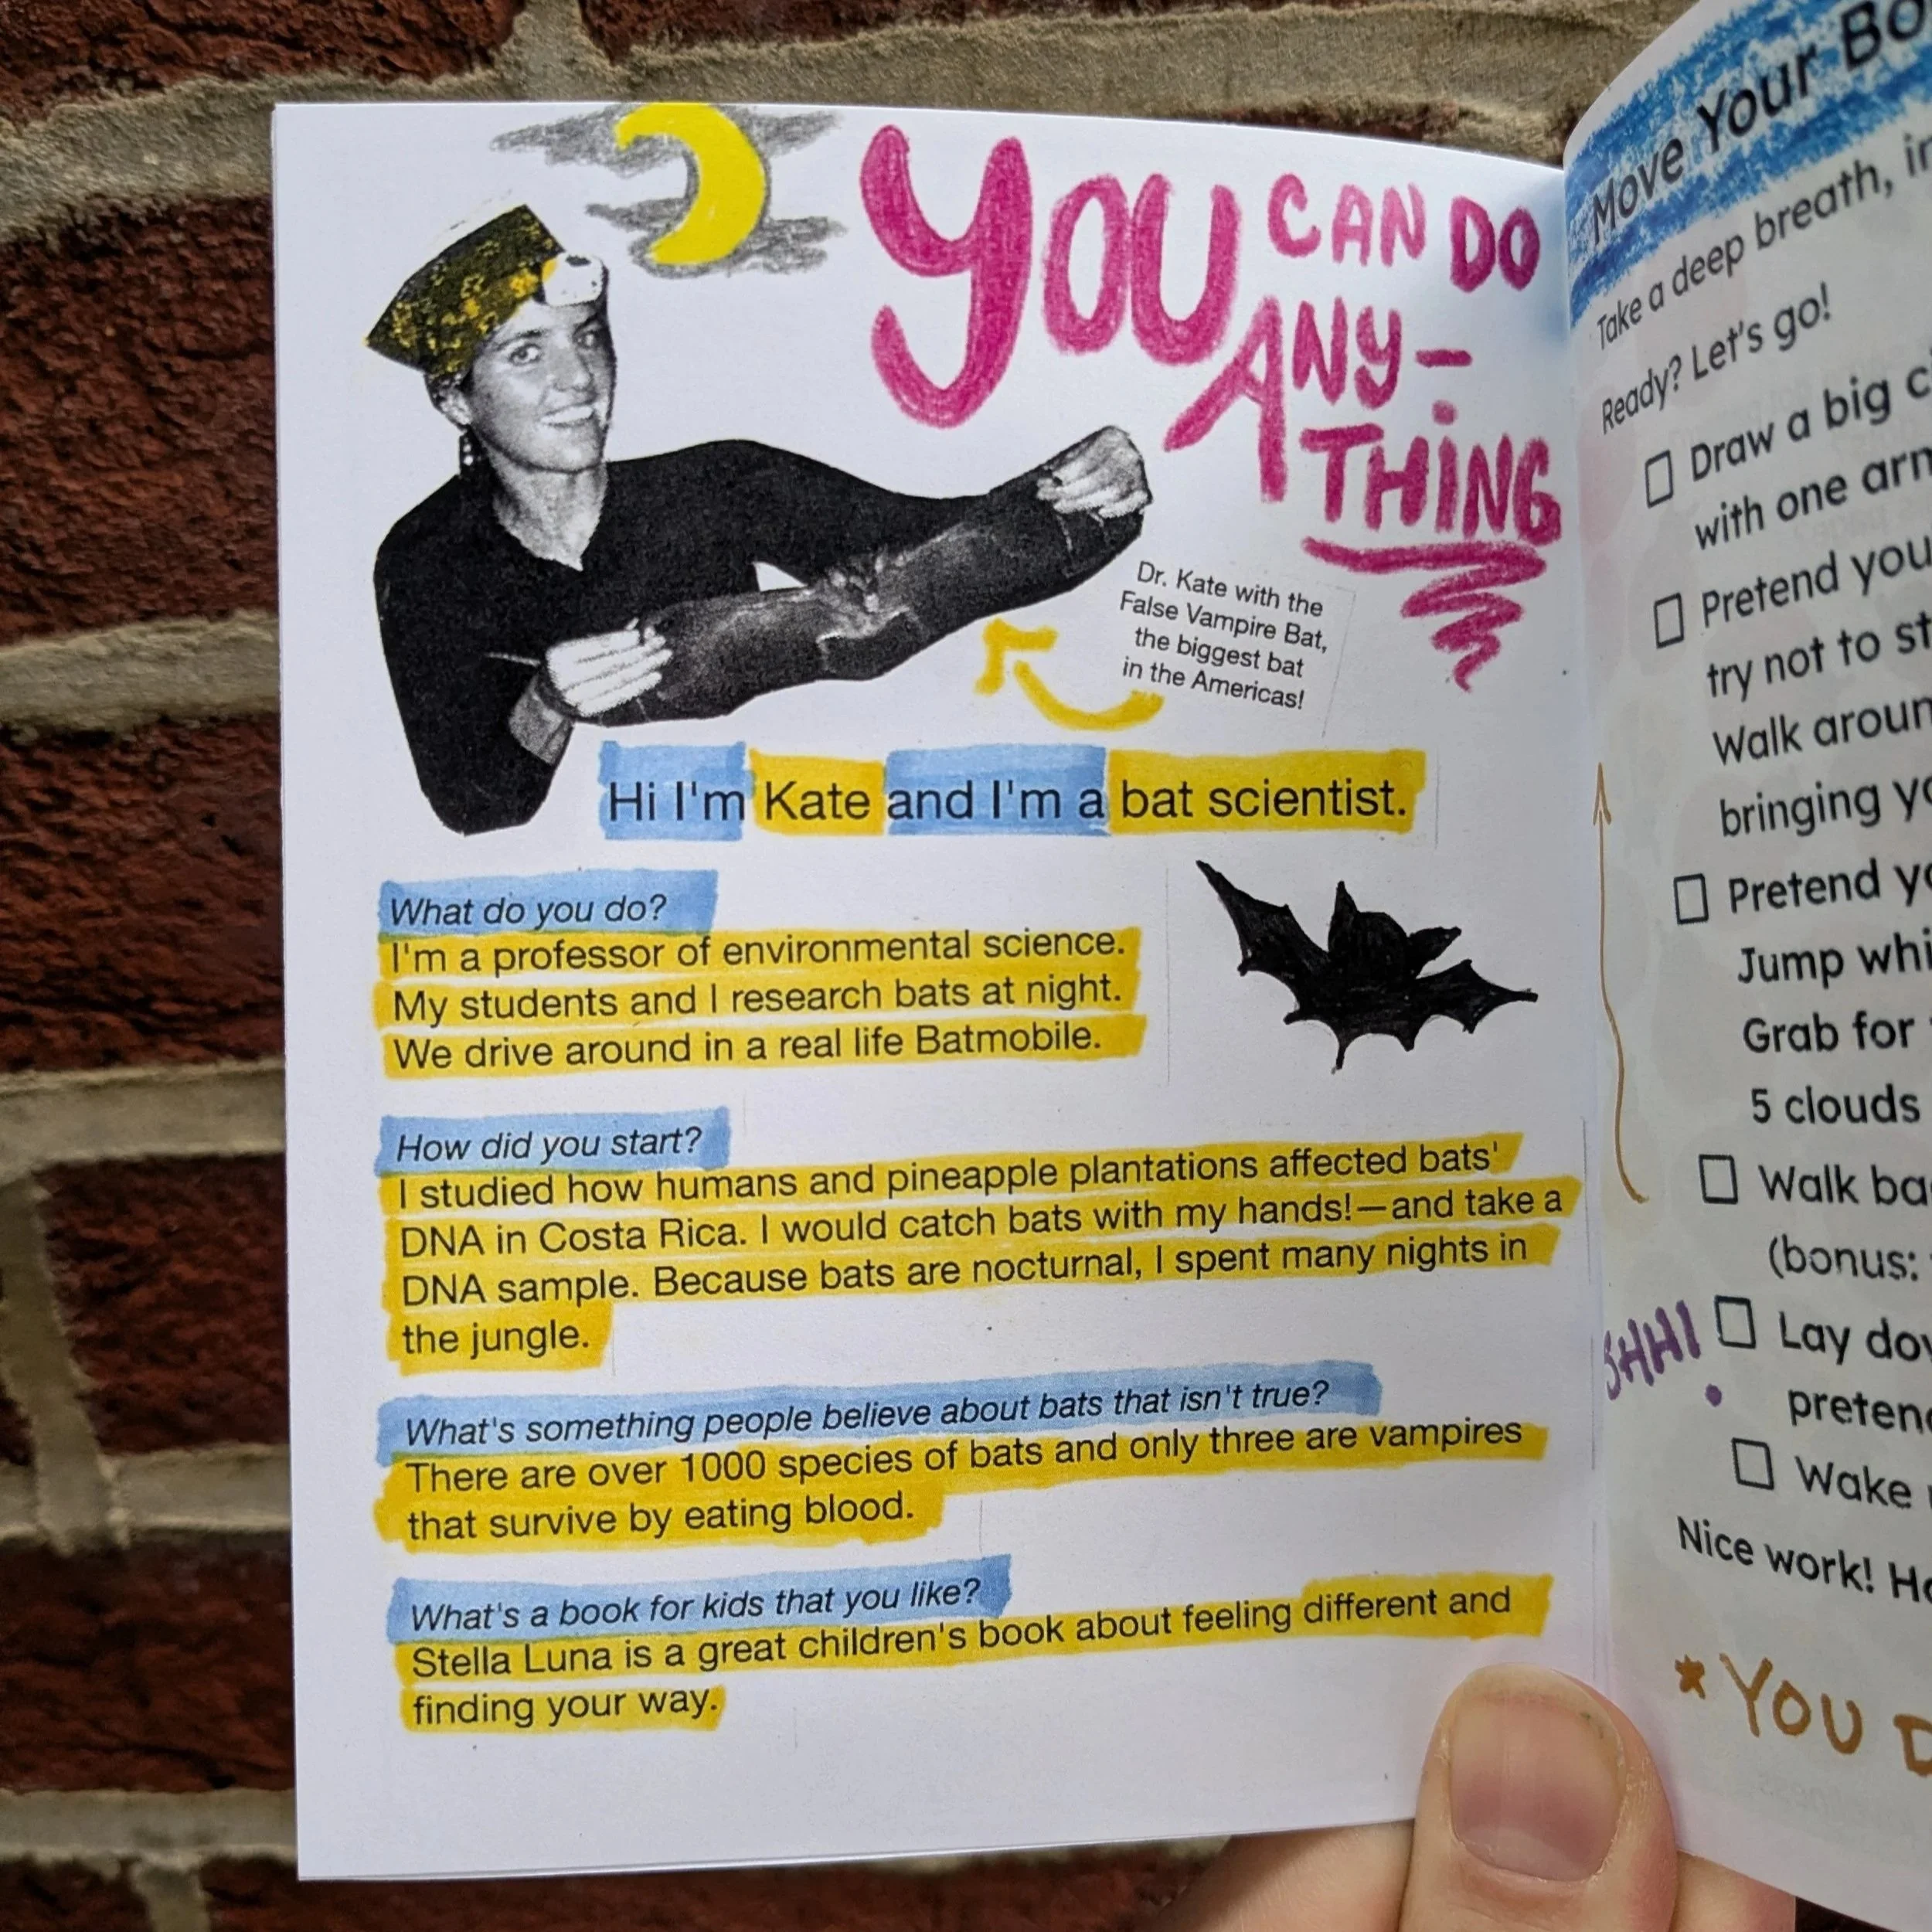 YOU CAN DO
ANY-
THING
Dr. Kate with the
False Vampire Bat,
the biggest bat
in the Americas!
Hi I'm Kate and I'm a bat scientist.
What do you do?
I'm a professor of environmental science.
My students and I research bats at night.
We drive around in a real life Batmobile.
How did you start?
I studied how humans and pineapple plantations affected bats'
DNA in Costa Rica. I would catch bats with my hands!—and take a
DNA sample. Because bats are nocturnal, I spent many nights in
the jungle.
What's something people believe about bats that isn't true?
There are over 1000 species of bats and only three are vampires
that survive by eating blood.
What's a book for kids that you like?
Stella Luna is a great children's book about feeling different and
finding your way.
Move Your
Take a deep breath,
Ready? Let's go!
Draw a big
with one
Pretend you
try not to
Walk
bringing
Pretend
Jump
Grab for
5 clouds
Walk
(bonus:
SHH!
Lay
Wake
Nice work!
*YOU